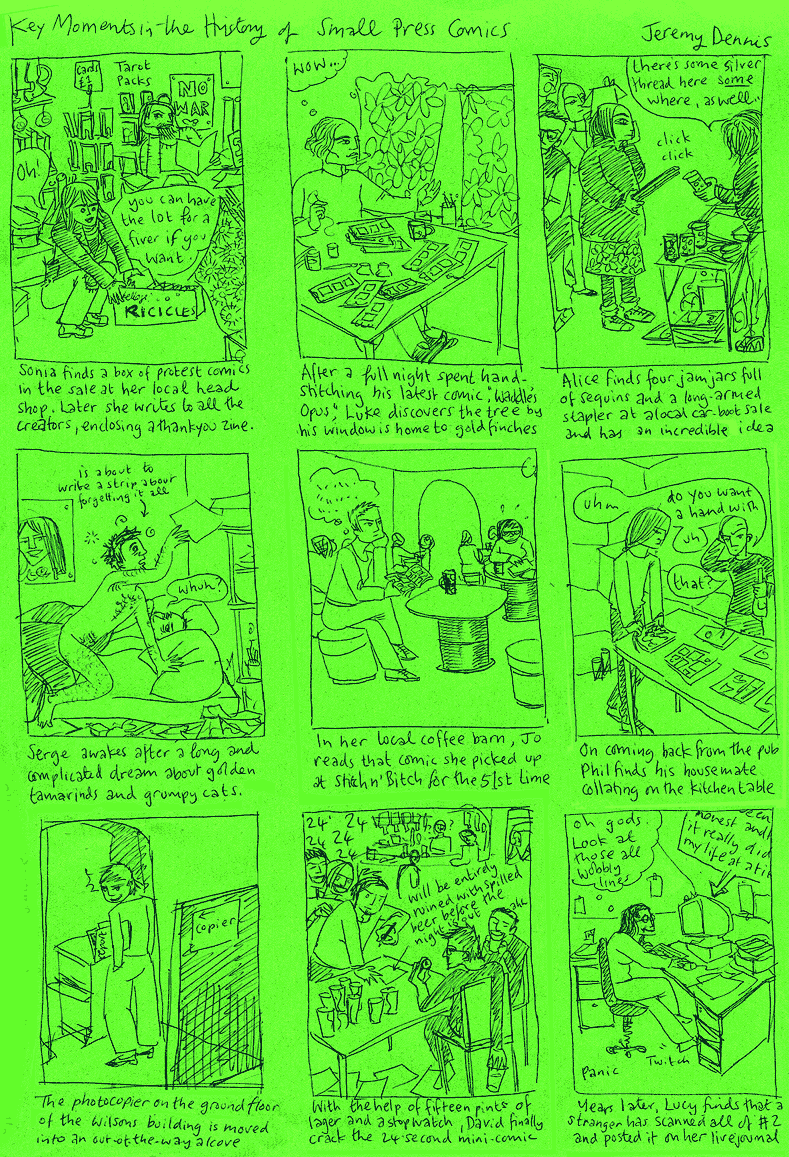 Key Moments in the History of Small Press Comics
Jeremy Dennis
Cards
£1
Tarot
Packs
NO
WAR
Oh!
you can have
the lot for a
fiver if you
want.
RICICLES
Sonia finds a box of protest comics
in the sale at her local head
shop. Later she writes to all the
creators, enclosing a thankyou zine.
WOW...
After a full night spent hand-
stitching his latest comic, "Waddle's
Opus", Luke discovers the tree by
his window is home to goldfinches
there's some silver
thread here some
where, as well..
click
click
Alice finds four jam jars full
of sequins and a long-armed
stapler at a local car-boot sale
and has an incredible idea
is about to
write a strip about
forgetting it all
whuh?
Serge awakes after a long and
complicated dream about golden
tamarinds and grumpy cats.
In her local coffee barn, Jo
reads that comic she picked up
at Stitch n' Bitch for the 51st time
uhm
do you want
a hand with
uh
that?
On coming back from the pub
Phil finds his housemate
collating on the kitchen table
report
copier
The photocopier on the ground floor
of the Wilsons building is moved
into an out-of-the-way alcove
24 24
24 24
24
?
will be entirely
ruined with spilled
beer before the
night is out
With the help of fifteen pints of
lager and a stopwatch, David finally
crack the 24-second mini-comic
oh gods.
Look at
those all
wobbly
lines
honest and
it really did
my life at a ti
Panic
Twitch
Years later, Lucy finds that a
stranger has scanned all of #2
and posted it on her livejournal